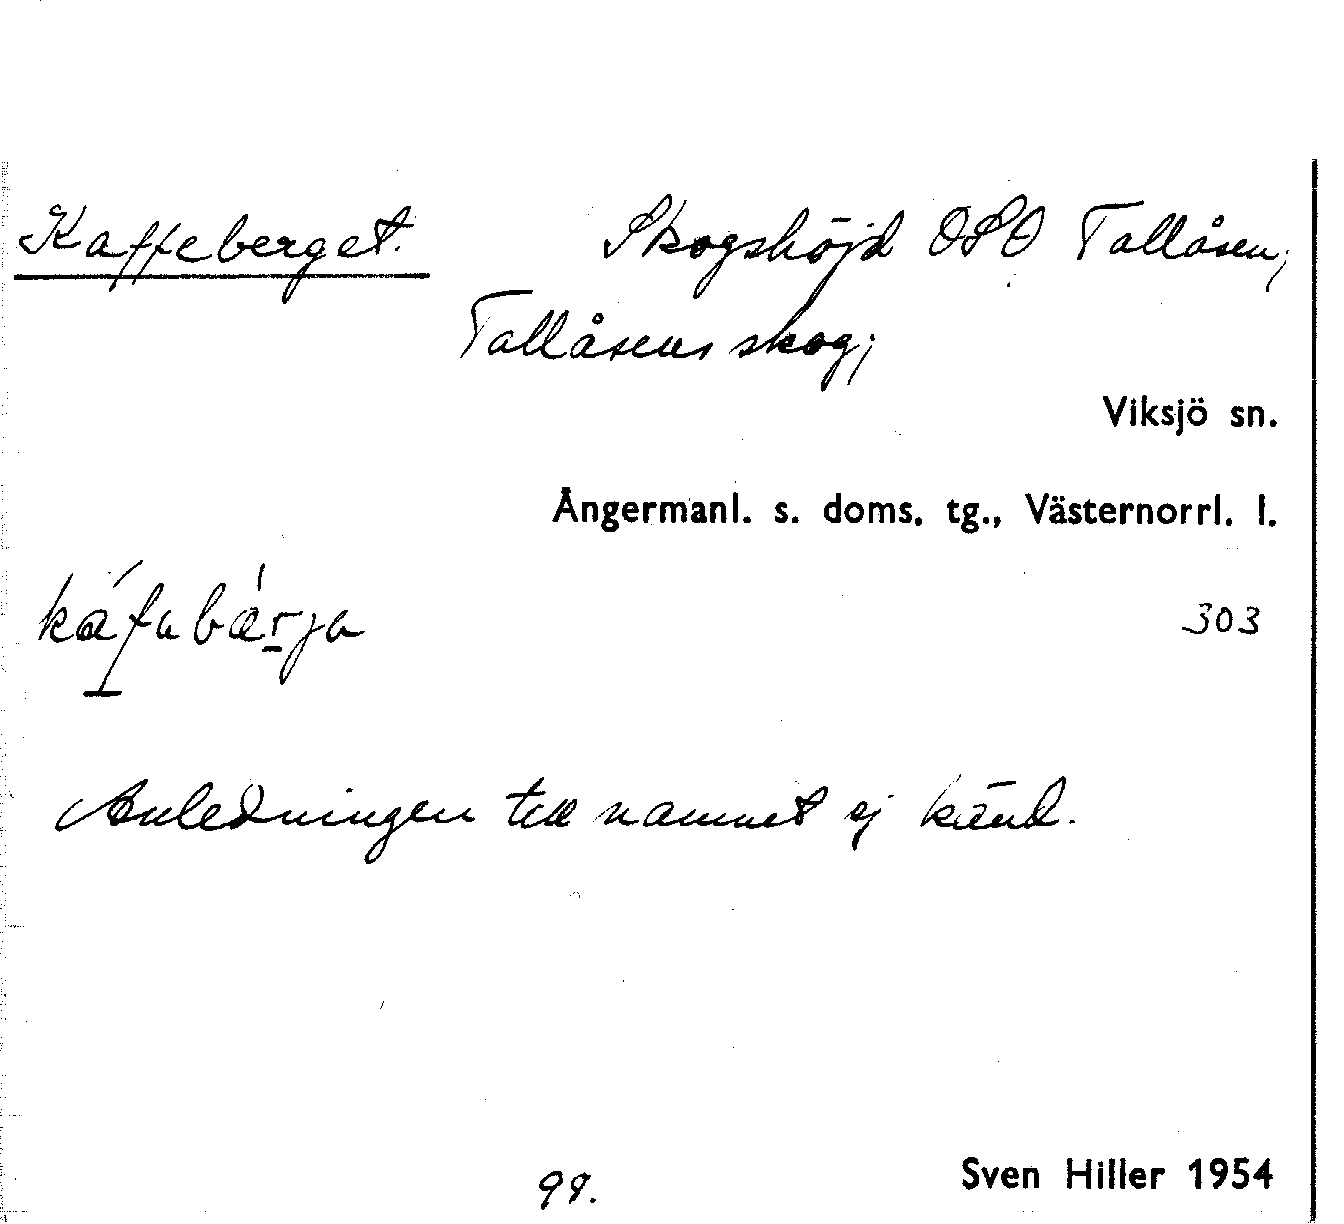 Kaffeberget. Skogshöjd OSO Tallåsen;
Tallåsens skog;
Viksjö sn.
Ångermanl. s. doms. tg., Västernorrl. l.
303
Anledningen till namnet ej känd.
99. Sven Hiller 1954